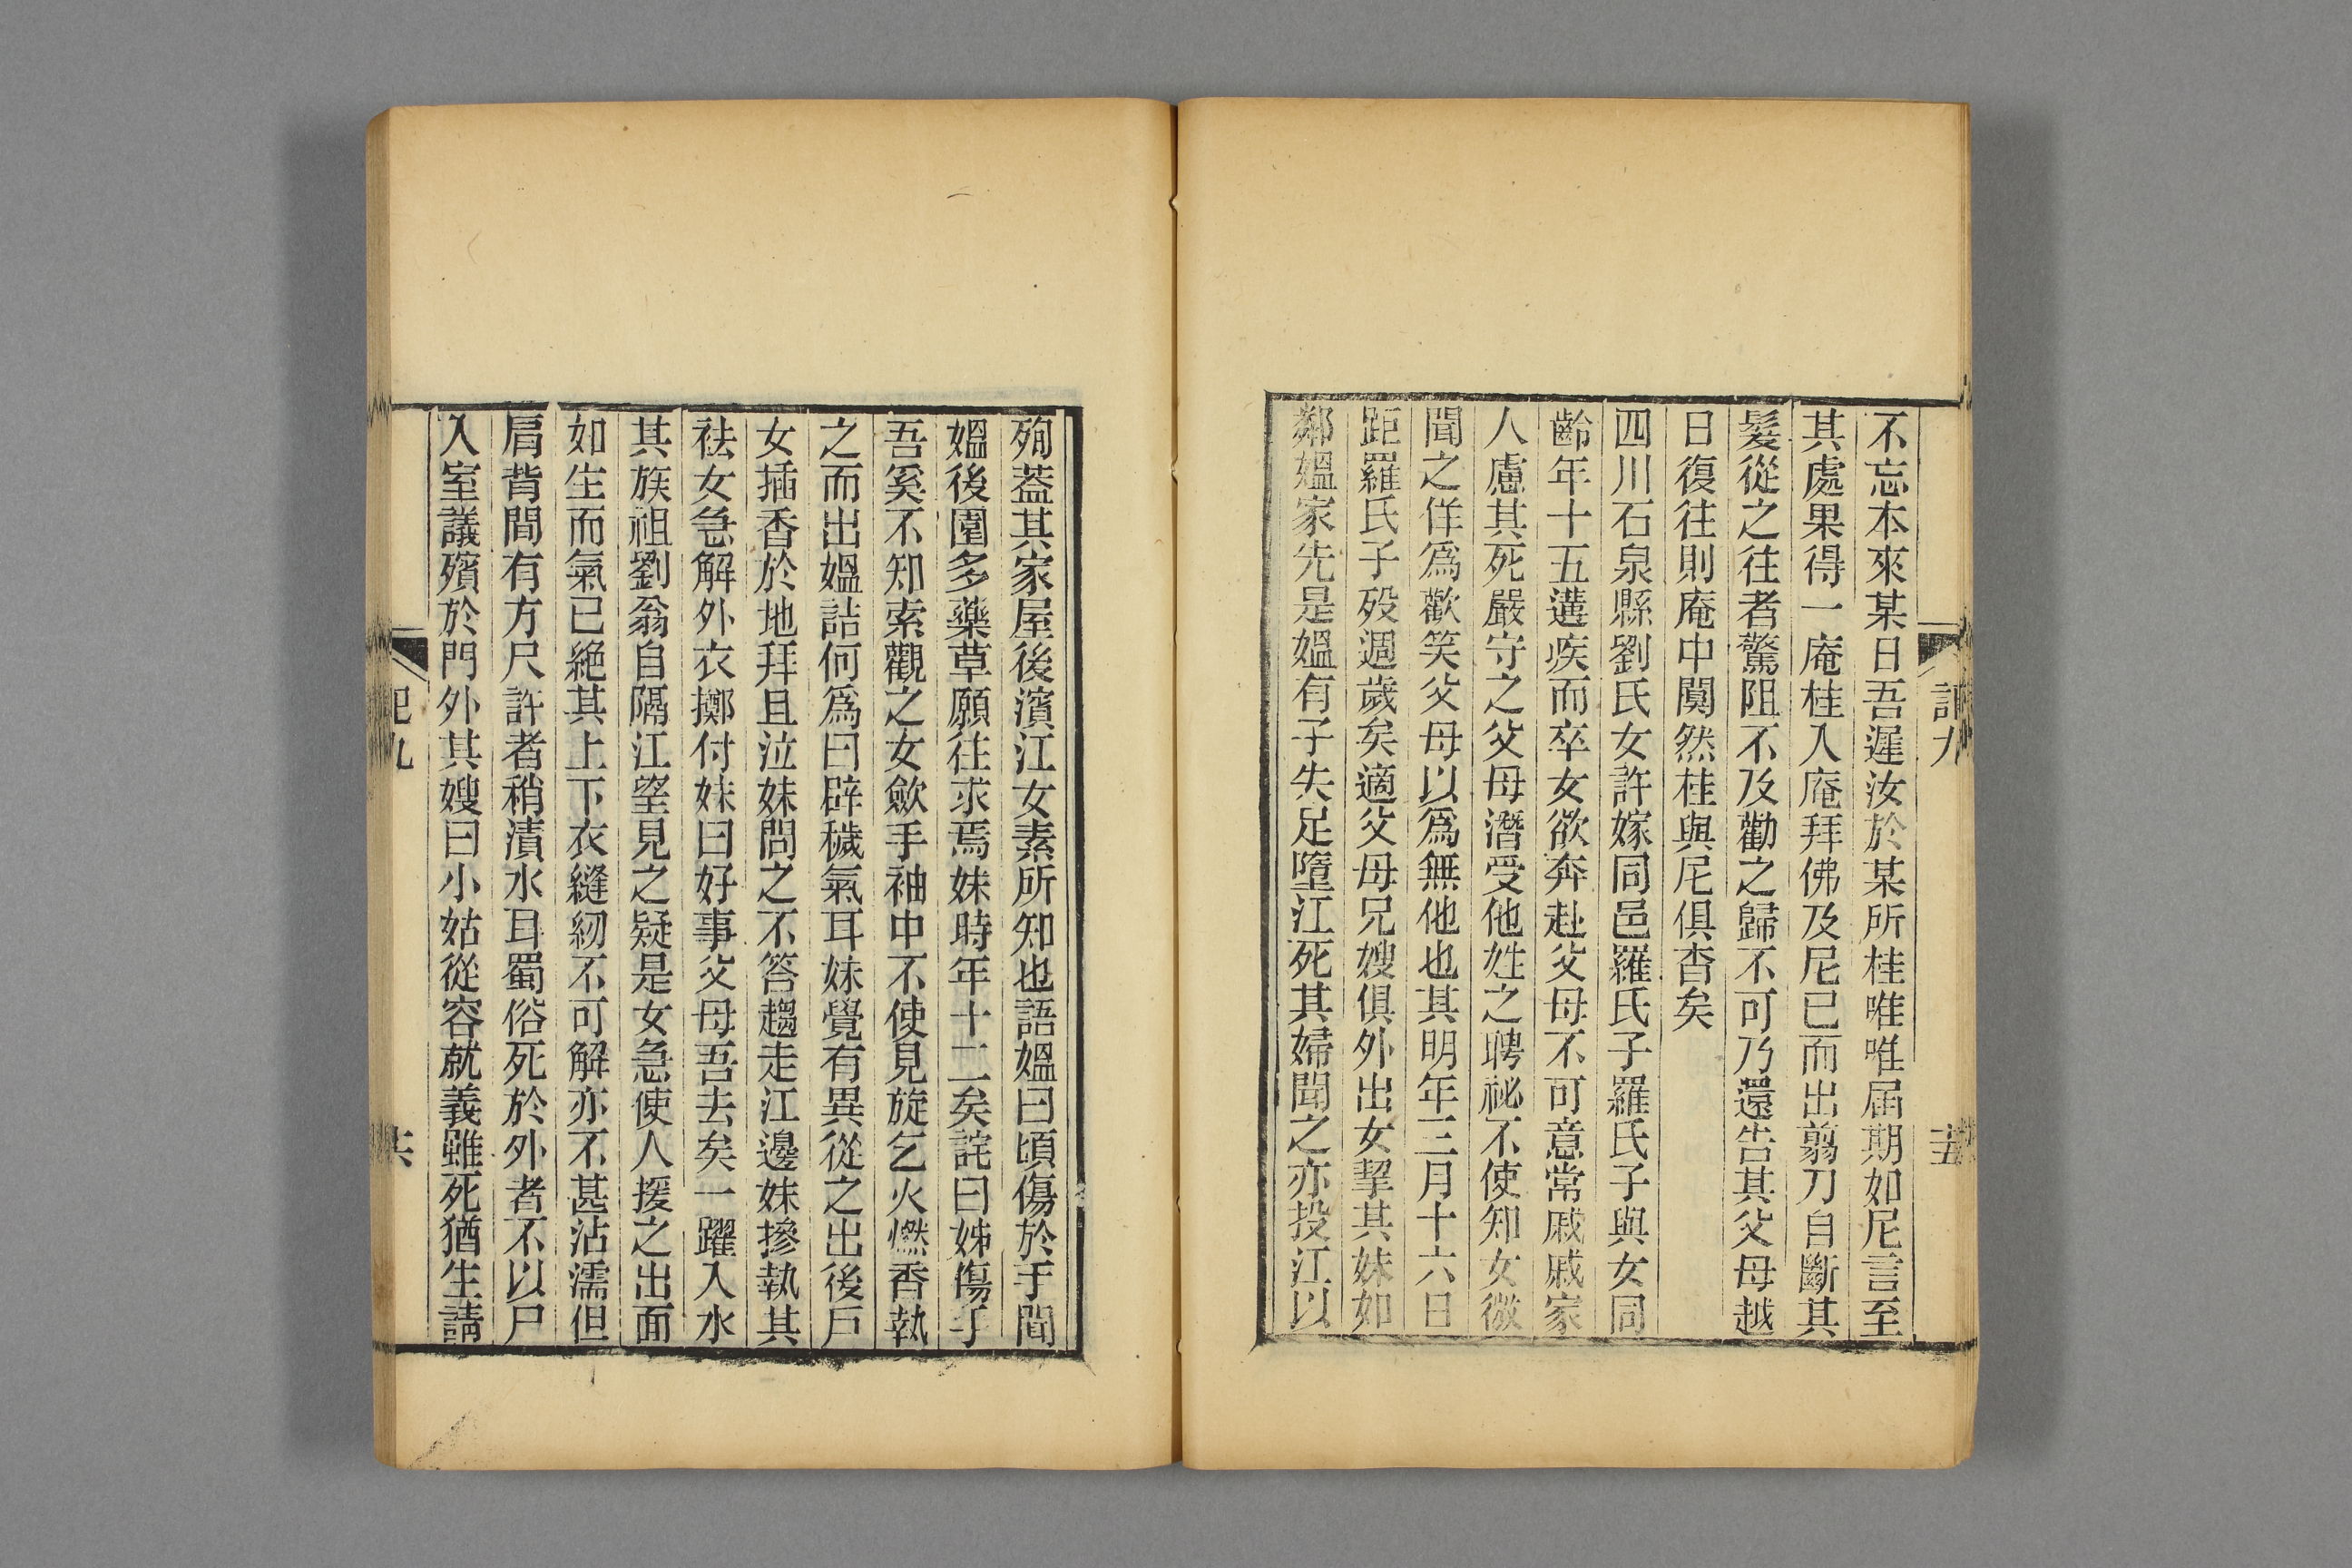 不忘本來某日吾遲汝於某所桂唯唯届期如尼言至
其處果得一庵桂入庵拜佛及尼已而出翦刀自斷其
髮從之往者驚阻不及勸之歸不可乃還告其父母越
日復往則庵中闃然桂與尼俱杳矣
四川石泉縣劉氏女許嫁同邑羅氏子羅氏子與女同
齡年十五遘疾而卒女欲奔赴父母不可意常戚戚家
人慮其死嚴守之父母潛受他姓之聘祕不使知女微
聞之佯爲歡笑父母以爲無他也其明年三月十六日
距羅氏子殁週歲矣適父母兄嫂俱外出女挈其妹如
鄰媼家先是媼有子失足墮江死其婦聞之亦投江以
殉葢其家屋後濱江女素所知也語媼曰頃傷於手聞
媼後園多藥草願往求焉妹時年十二矣詫曰姊傷手
吾奚不知索觀之女歛手袖中不使見旋乞火燃香執
之而出媼詰何爲曰辟穢氣耳妹覺有異從之出後戸
女插香於地拜且泣妹問之不答趨走江邊妹摻執其
袪女急解外衣擲付妹曰好事父母吾去矣一躍入水
其族祖劉翁自隔江望見之疑是女急使人援之出面
如生而氣已絶其上下衣縫紉不可解亦不甚沾濡但
肩背間有方尺許者稍漬水耳蜀俗死於外者不以尸
入室議殯於門外其嫂曰小姑從容就義雖死猶生請